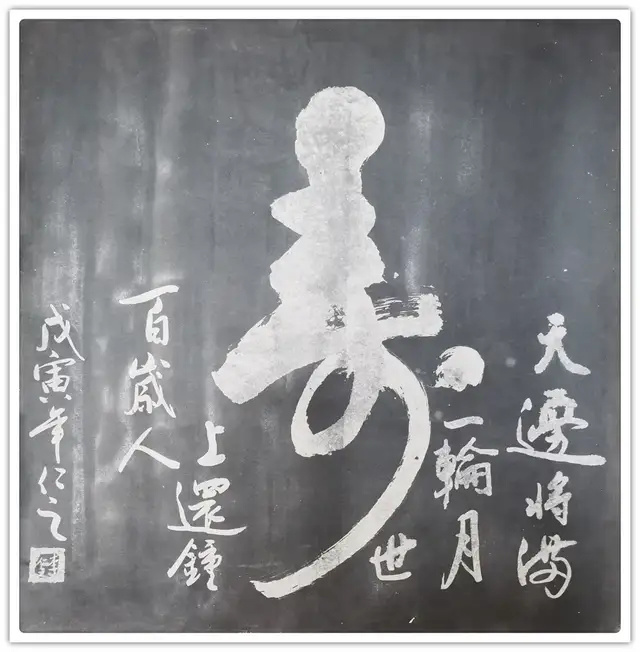 寿
天邊将满
一輪月
世
上還鐘
百歲人
戊寅年仁之